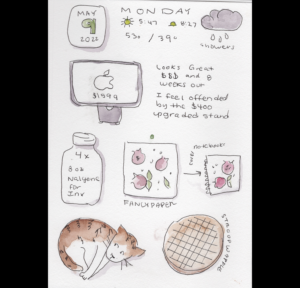 MAY
9
2022
MONDAY
5:47 8:27
53° / 39°
showers
$1599
Looks Great
$$$ and 8
weeks out
I feel offended
by the $400
upgraded stand
4x
8 oz
Nalgene
for
Ink
FANCY PAPER
notebooks
STROOPWAFEL